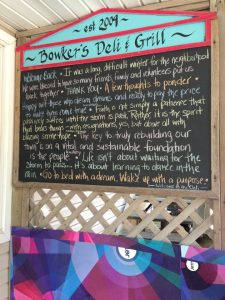 ~ est 2009 ~
Bowker's Deli & Grill
Welcome Back • It was a long, difficult winter for the neighborhood
We were blessed to have so many friends, family and volunteers put us
back together • Thank you! • A few thoughts to ponder •
Happy are those who dream dreams and ready to pay the price
to make them come true • Faith is not simply a patience that
passively suffers until the storm is past. Rather, it is the spirit
that bears things - with resignations, yes, but above all with
blazing serene hope • The key to truly rebuilding our
town is on a vital and sustainable foundation
is the people • Life isn't about waiting for the
storm to pass... it's about learning to dance in the
rain • Go to bed with a dream. Wake up with a purpose •